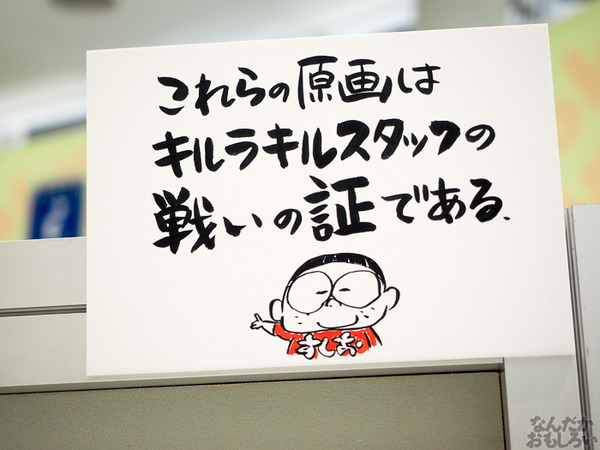 これらの原画は
キルラキルスタッフの
戦いの証である.
すしお.
なんだか
おもしろい